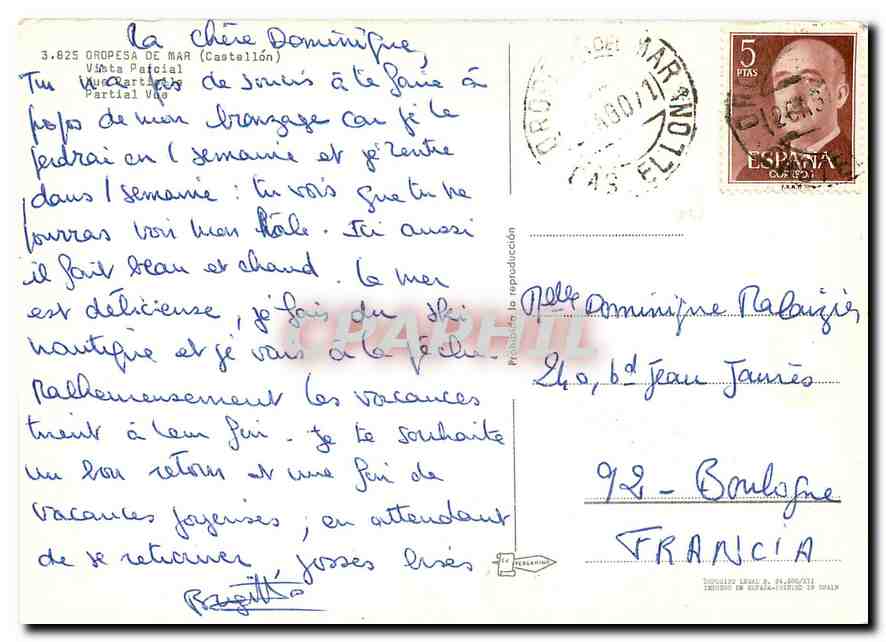 Ma chère Dominique,
3.825 OROPESA DE MAR (Castellón)
Vista Parcial
Vue Partielle
Partial Vue
Tu n'as pas de soucis à te faire à
propos de mon bronzage car je le
perdrai en 1 semaine et je rentre
dans 1 semaine : tu vois que tu ne
pourras voir mon hâle. Ici aussi
il fait beau et chaud. La mer
est délicieuse, je fais du ski
nautique et je vais à la pêche.
Malheureusement les vacances
tirent à leur fin. Je te souhaite
un bon retour et une fin de
vacances joyeuses, en attendant
de se retrouver, grosses bises
Brigitte
Prohibida la reproducción
CPAPHIL
5
PTAS
ESPAÑA
CORREOS
OROPESA DEL MAR
AGO 71
CASTELLON
Melle Dominique Malaizier
240, bd Jean Jaurès
92 - Boulogne
FRANCIA
PERGAMINO
DEPOSITO LEGAL B. 24.500/XII
IMPRESO EN ESPAÑA-PRINTED IN SPAIN